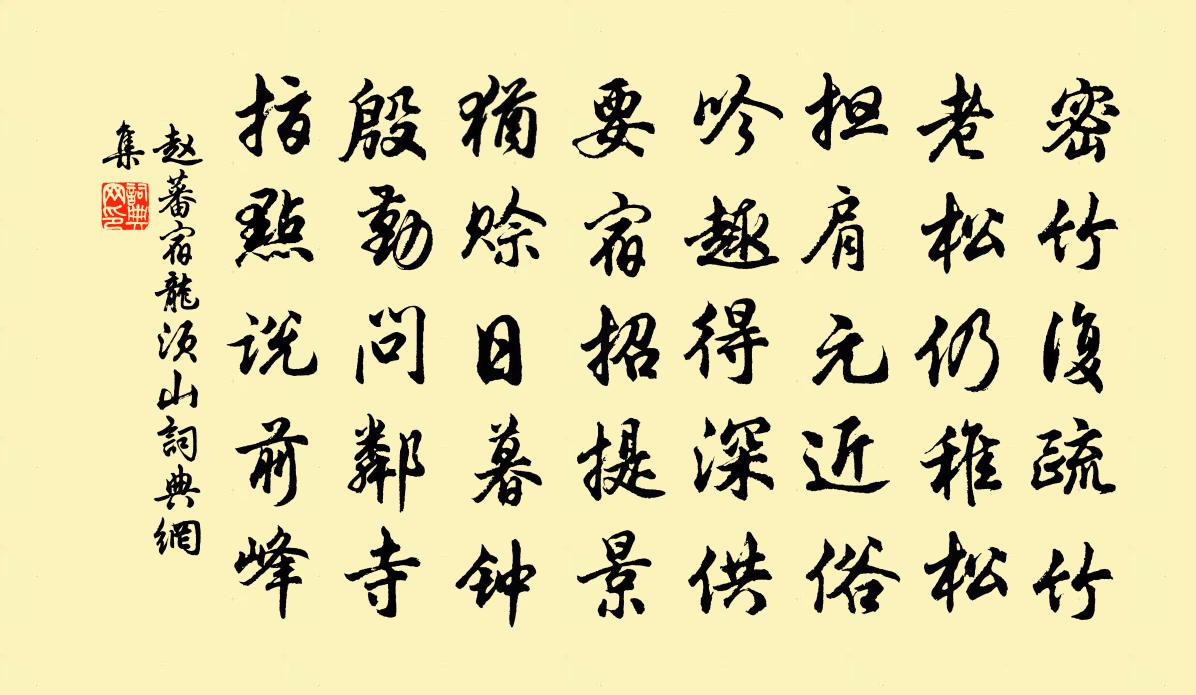 密竹復疏竹
老松仍稚松
担肩元近俗
吟趣得深供
要宿招提景
猶赊日暮钟
殷勤問鄰寺
指點说前峰
赵蕃宿龍须山詞典網
集
詞典网印